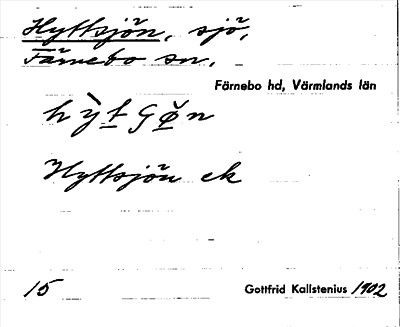 Hyttsjön, sjö,
Färnebo sn.
Färnebo hd, Värmlands län
Hyttsjön ek
15
Gottfrid Kallstenius 1902